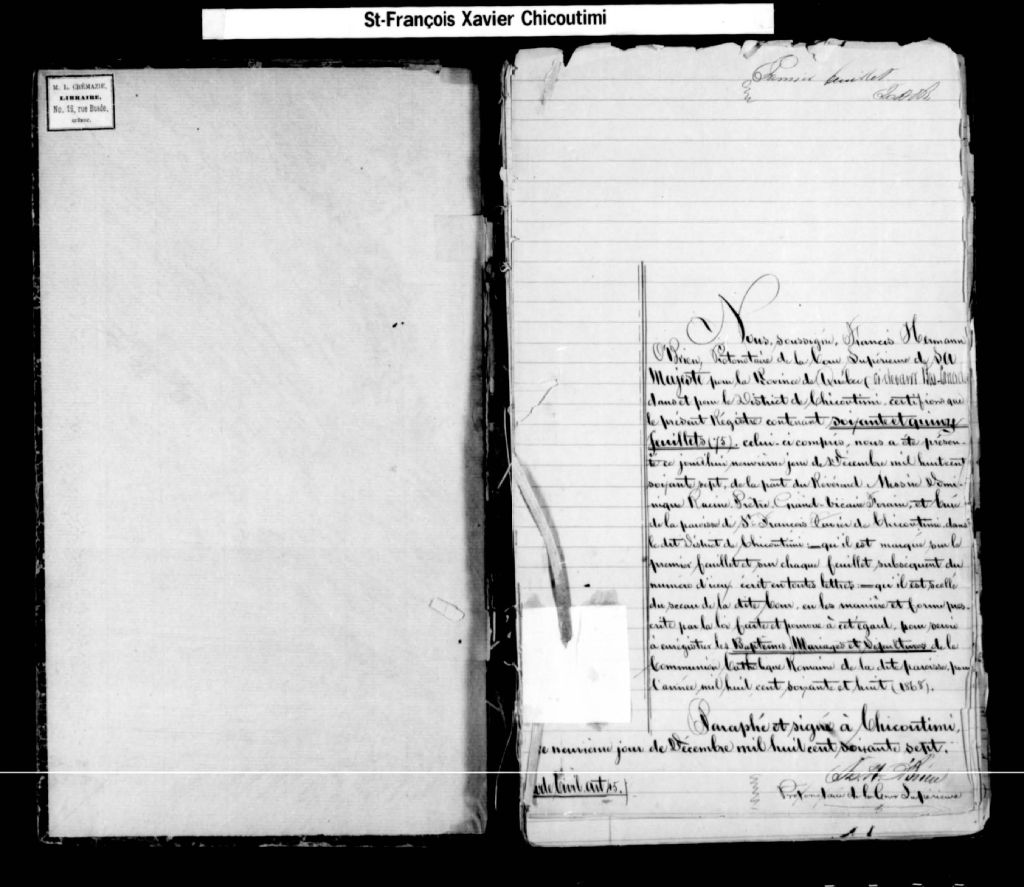 St-François Xavier Chicoutimi
M. L. CRÉMAZIE,
LIBRAIRE,
No. 12, rue Buade,
QUÉBEC.
Premier feuillet
Nous, soussigné, Francis Hermann
O'Brien, Protonotaire de la Cour Supérieure de SA
Majesté pour la Province de Québec (ci-devant Bas-Canada)
dans et pour le District de Chicoutimi, certifions que
le présent Régistre contenant soixante et quinze
feuillets (75), celui-ci compris, nous a été présen-
té ce jourd'hui neuvième jour de Décembre mil huit cent
soixant sept, de la part du Révérend Messire Domi-
nique Racine, Prêtre, Grand-Vicaire Forain, et Curé
de la paroisse de St. François Xavier de Chicoutimi, dans
le dit District de Chicoutimi: — qu'il est marqué sur le
premier feuillet et sur chaque feuillet subséquent du
numéro d'iceux écrit en toutes lettres: — qu'il est scellé
du sceau de la dite Cour, en la manière et forme pres-
crite par la loi faite et pourvue à cet égard, pour servir
à enrégistrer les Baptêmes, Mariages et Sépultures de la
Communion Catholique Romaine de la dit paroisse, pour
l'année mil huit cent soixante et huit (1868).
Paraphé et signé à Chicoutimi,
ce neuvième jour de Décembre mil huit cent soixante sept.
O'Brien
Protonotaire de la Cour Supérieure
Code Civil art 45.